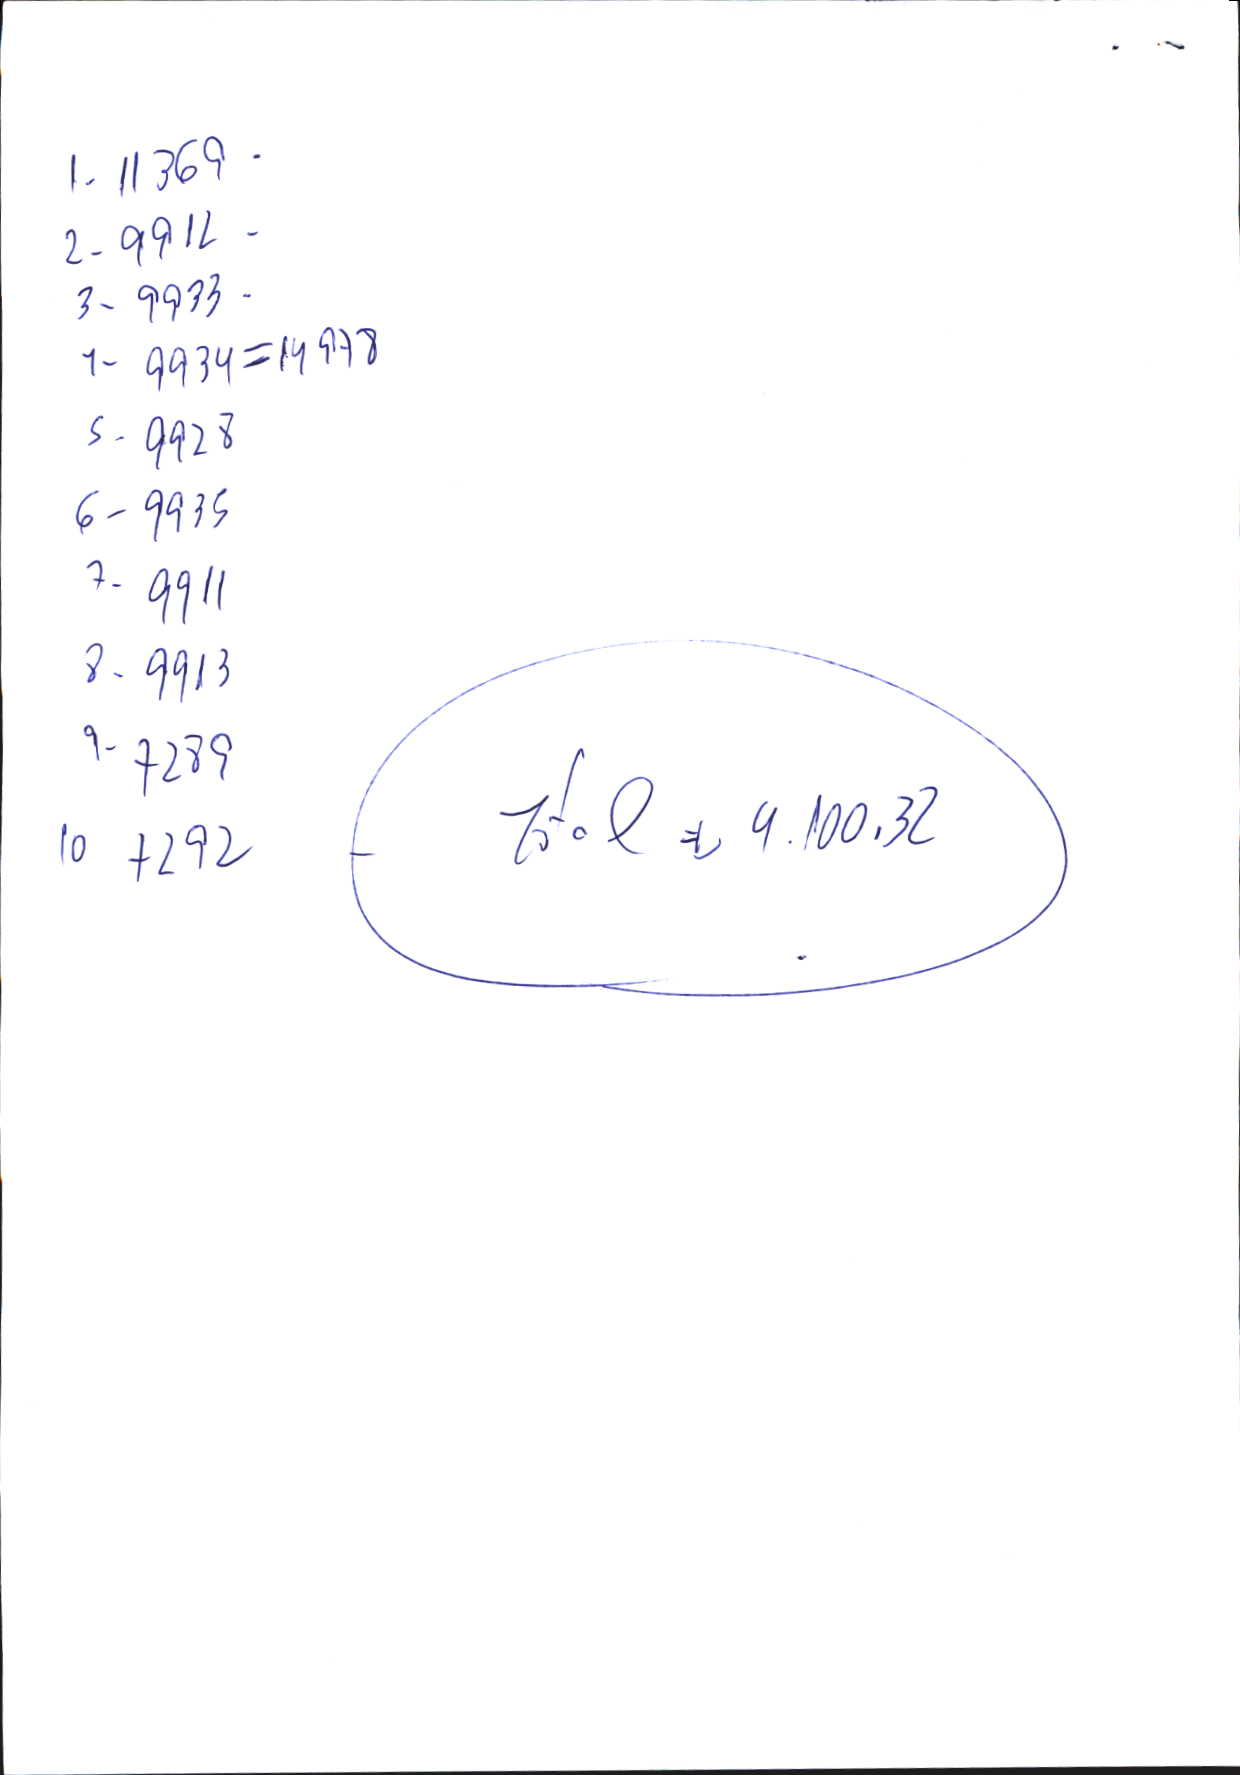 1- 11369 -
2- 9912 -
3- 9933 -
4- 9934 = 14978
5- 9928
6- 9935
7- 9911
8- 9913
9- 7289
10 7292
Total = 9.100,32